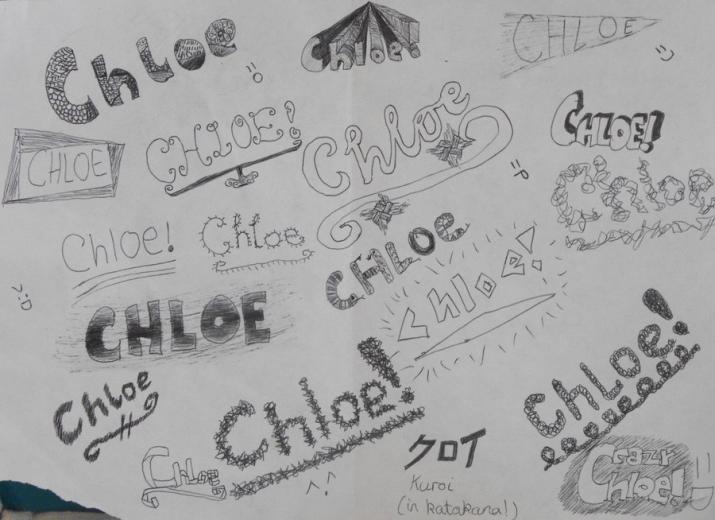 Chloe
=O
Chloe!
CHLOE
=D
CHLOE
CHLOE!
Chloe
CHLOE!
=P
Chloe
Chloe!
Chloe
CHLOE
<hloe!
>:D
CHLOE
Chloe
Chloe!
Chloe!
Chloe
^.^
クロイ
Kuroi
(in katakana!)
Crazy
Chloe!
=D